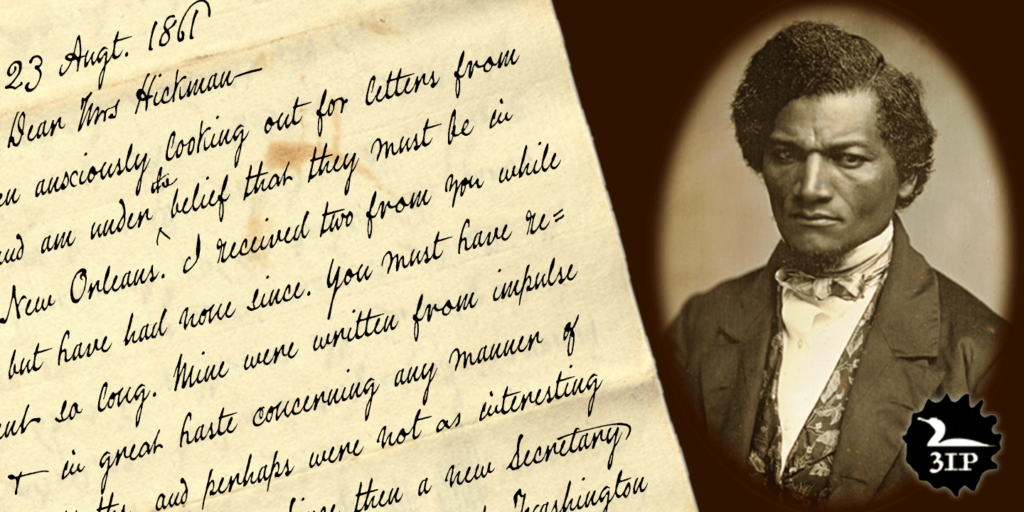 23 Augt. 1861
Dear Mrs Hickman—
anxiously looking out for letters from
and am under the belief that they must be in
New Orleans. I received two from you while
but have had none since. You must have re=
so long. Mine were written from impulse
+ in great haste concerning any manner of
and perhaps were not as interesting
then a new Secretary
Washington
3IP